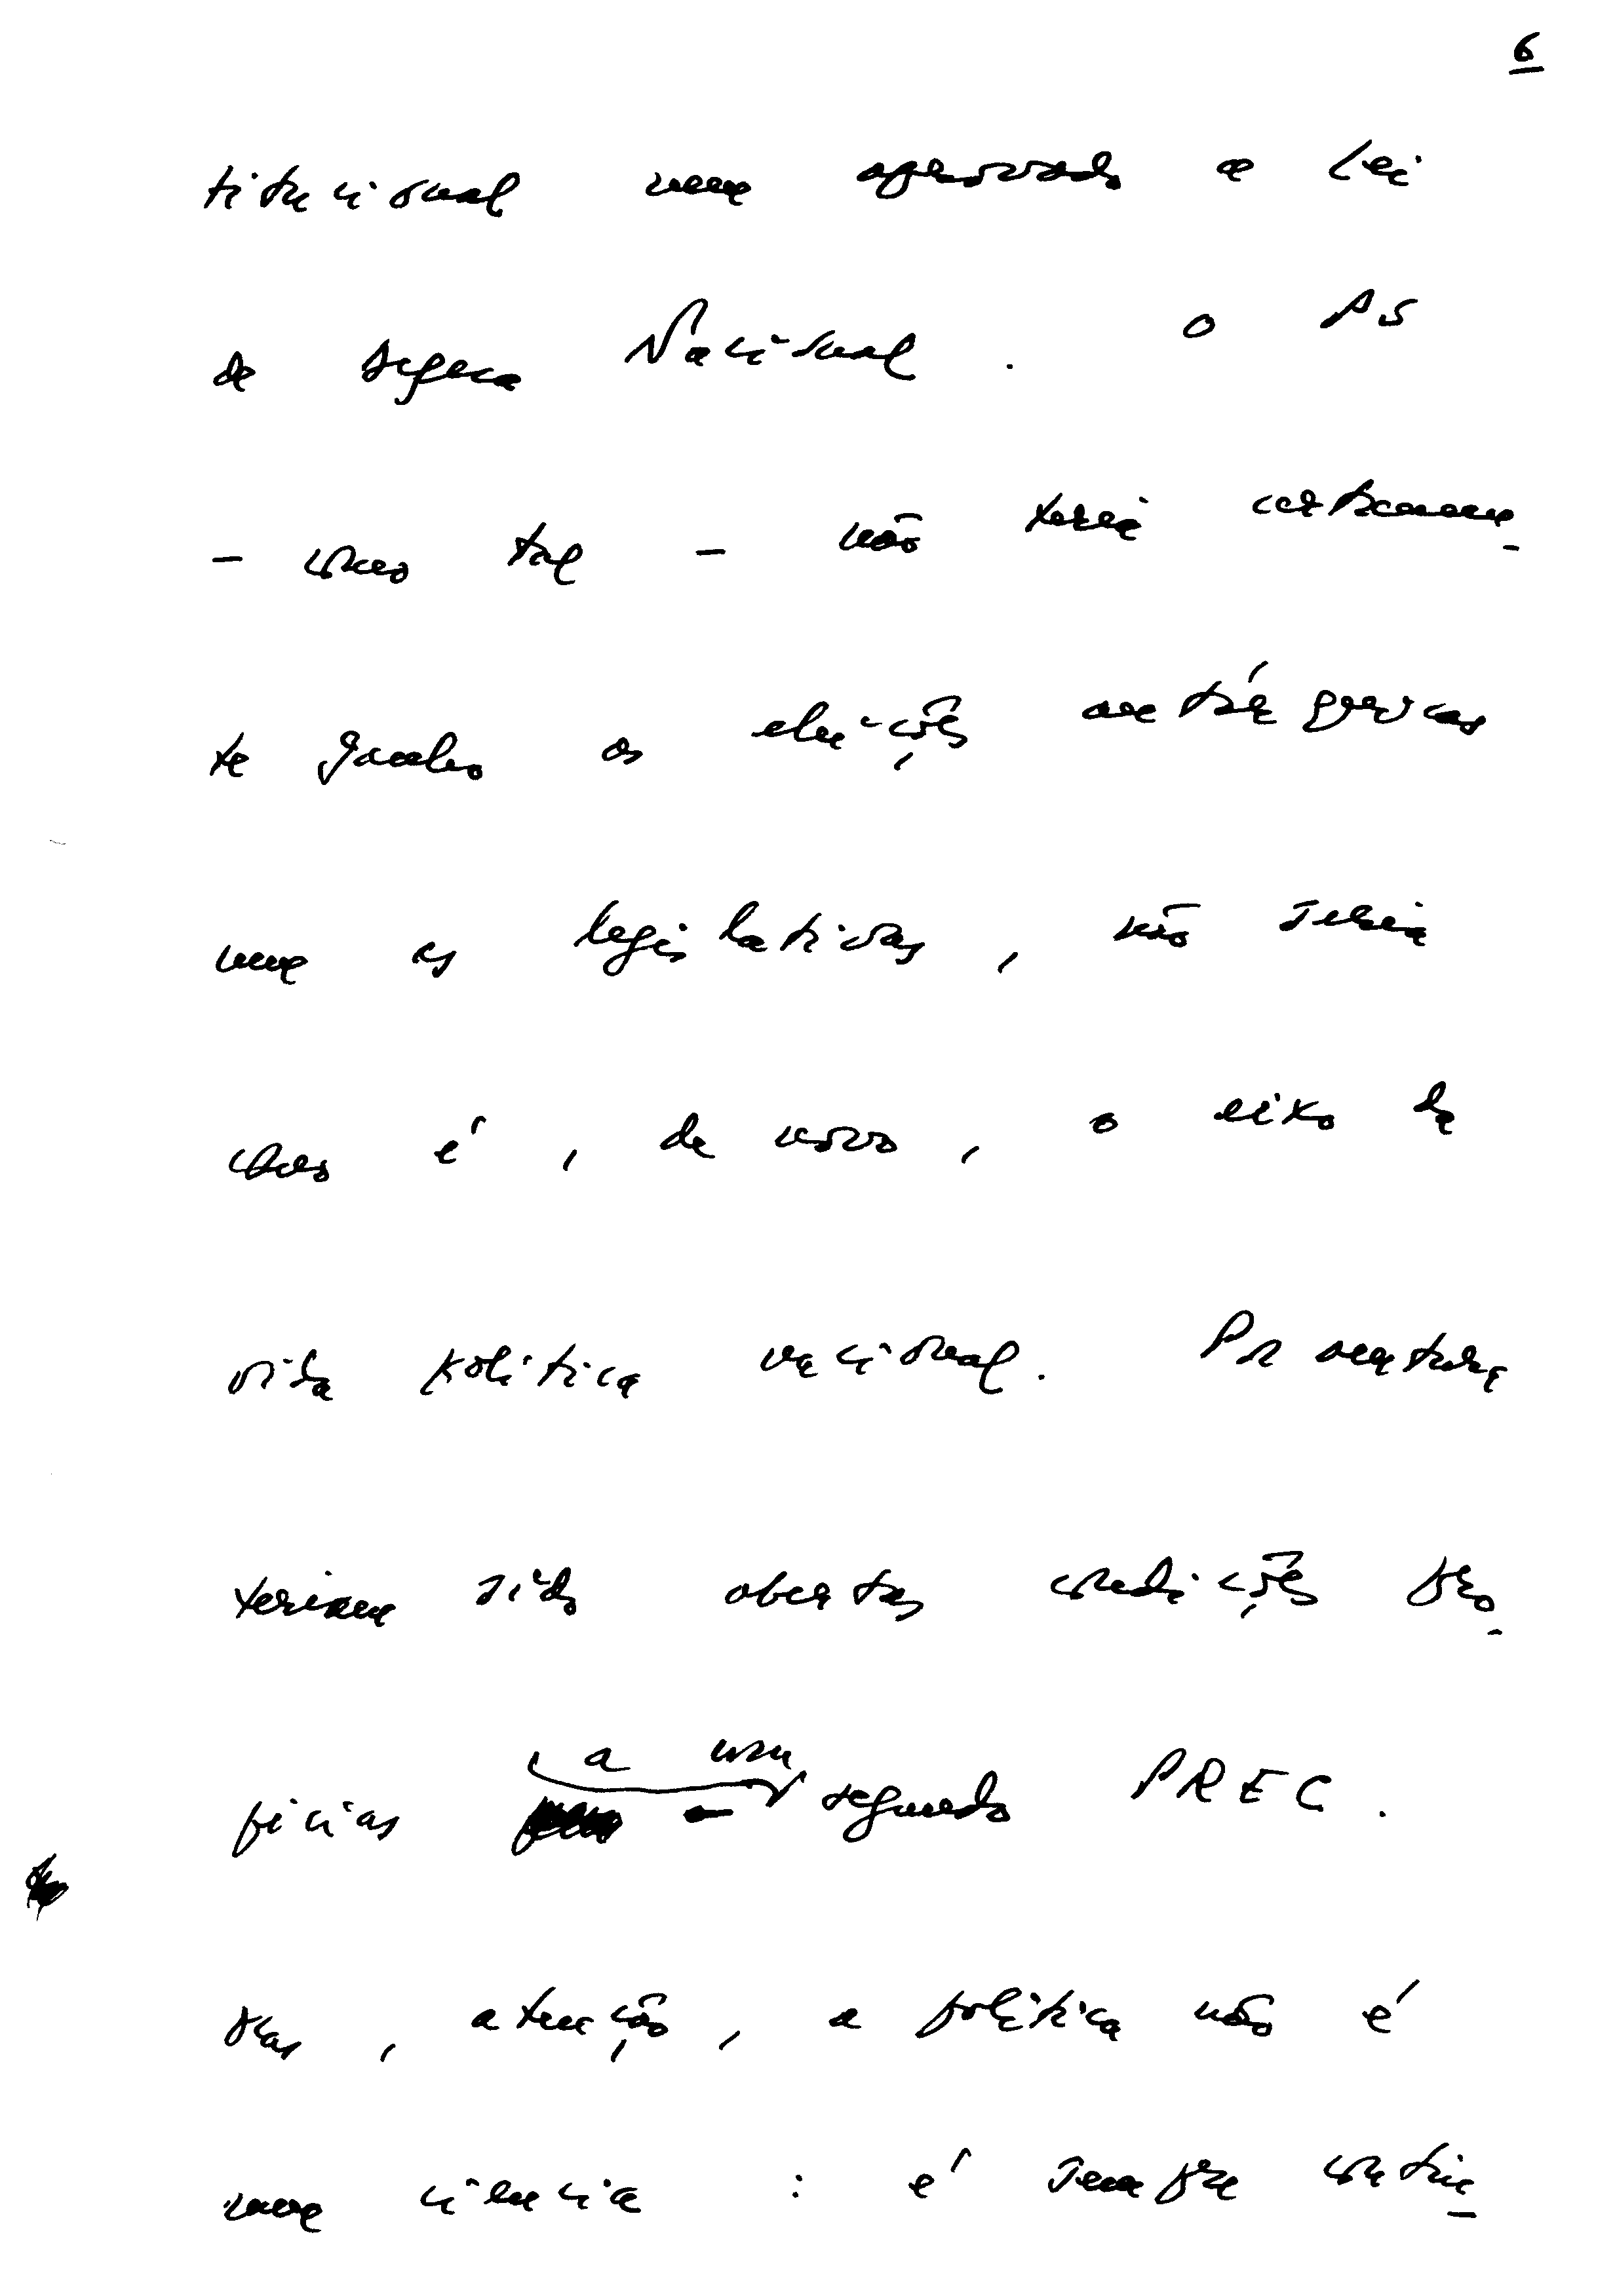 6
titucional nem aprovada a Lei
de Defesa Nacional. O PS
- como tal - não teria certamen-
te ganho as eleições autárquicas
nem as legislativas, não seria
como é, de novo, o eixo da
vida política nacional. Porventura
teriam sido abertas condições pro-
pícias a um segundo PREC.
Mas, atenção, a política não é
uma ciência: é sempre contin-